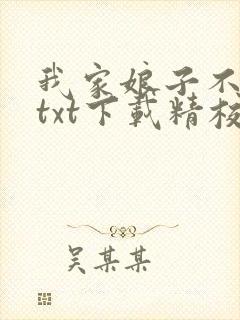 我家娘子不
txt下載精校
吴某某